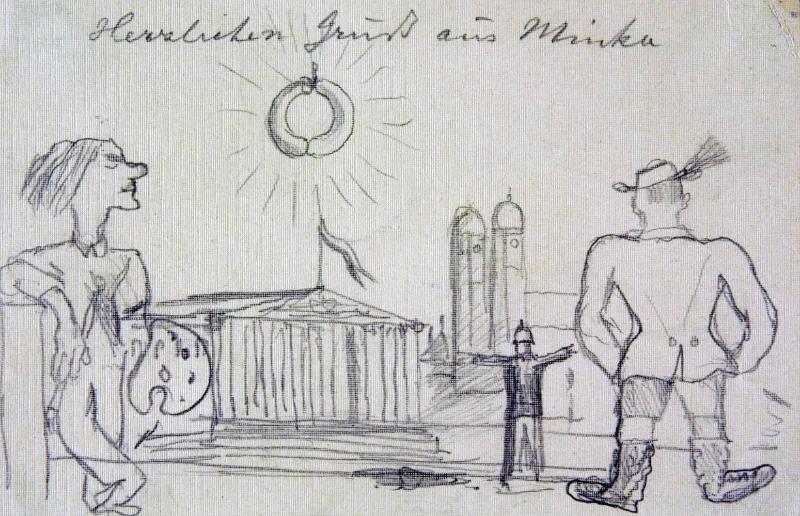 Herzlichen Gruß aus Minka